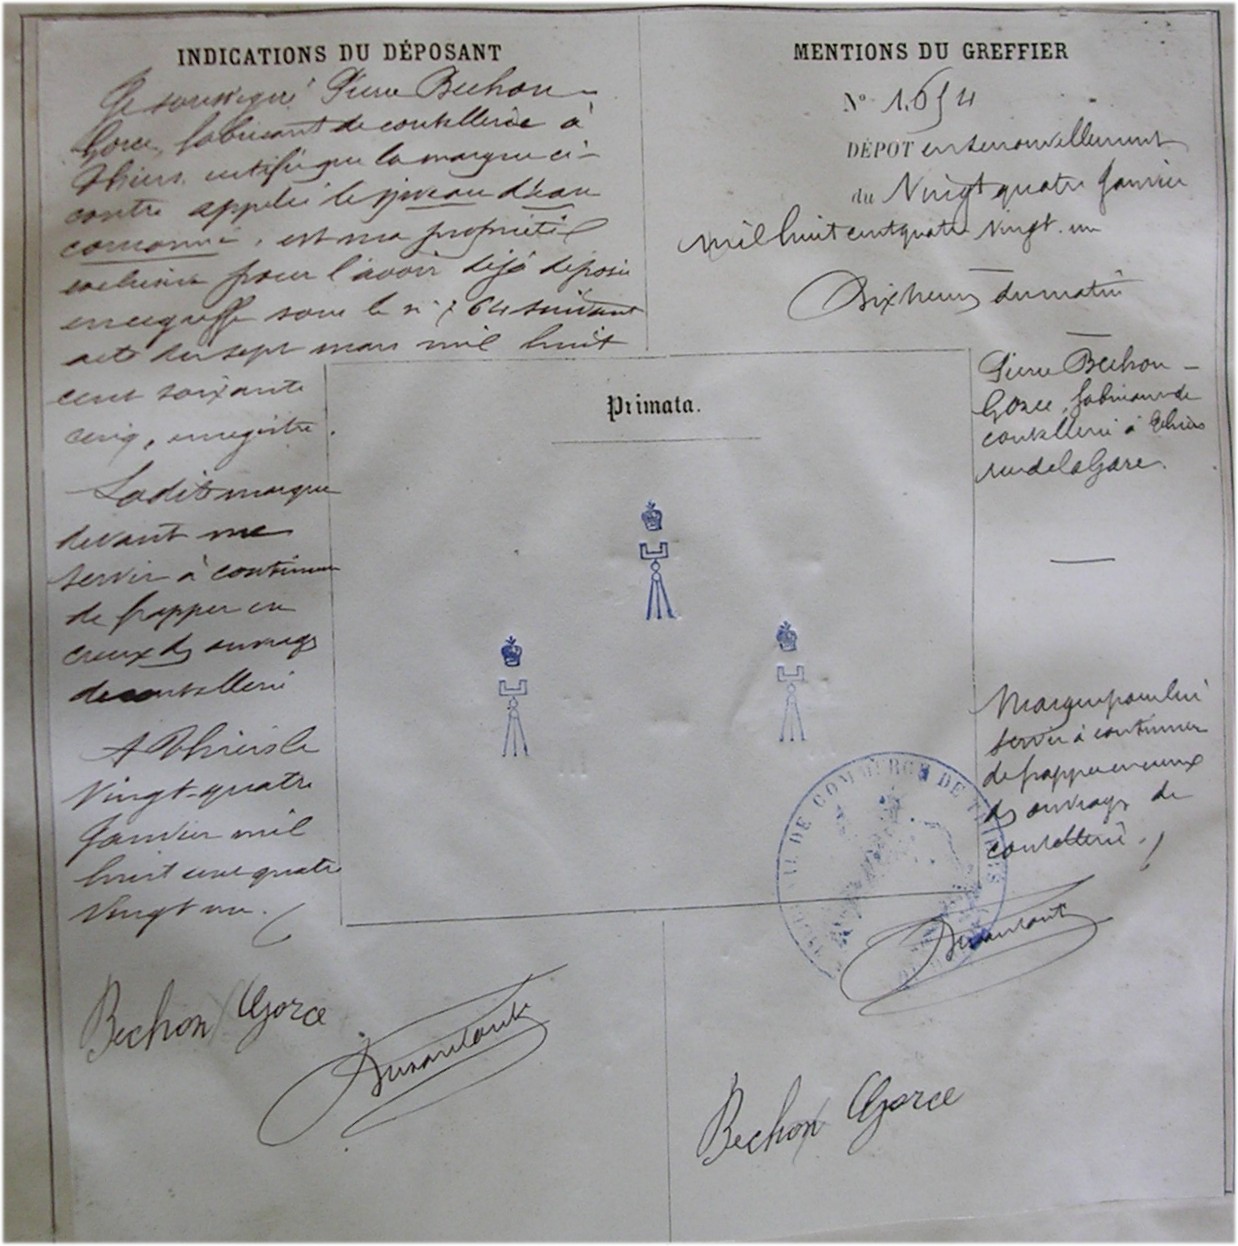 INDICATIONS DU DÉPOSANT
Je soussigné Pierre Bechon-
Gorce, fabricant de coutellerie à
Thiers, certifie que la marque ci-
contre appelée le niveau d'eau
couronné, est ma propriété
exclusive pour l'avoir déjà déposée
au greffe sous le n° 764 suivant
acte du sept mars mil huit
cent soixante
cinq, enregistré.
Ladite marque
devant me
servir à continuer
de frapper en
creux des ouvrages
de coutellerie
A Thiers le
vingt-quatre
Janvier mil
huit cent quatre
vingt un.
Bechon Gorce
MENTIONS DU GREFFIER
N° 1,654
DÉPOT en renouvellement
du Vingt quatre Janvier
mil huit cent quatre vingt. un
Dix heures du matin
Pierre Bechon-
Gorce, fabricant de
coutellerie à Thiers
rue de la Gare.
Marque pour lui
servir à continuer
de frapper en creux
des ouvrages de
coutellerie.
Primata.
TRIBUNAL DE COMMERCE DE THIERS
Bechon Gorce